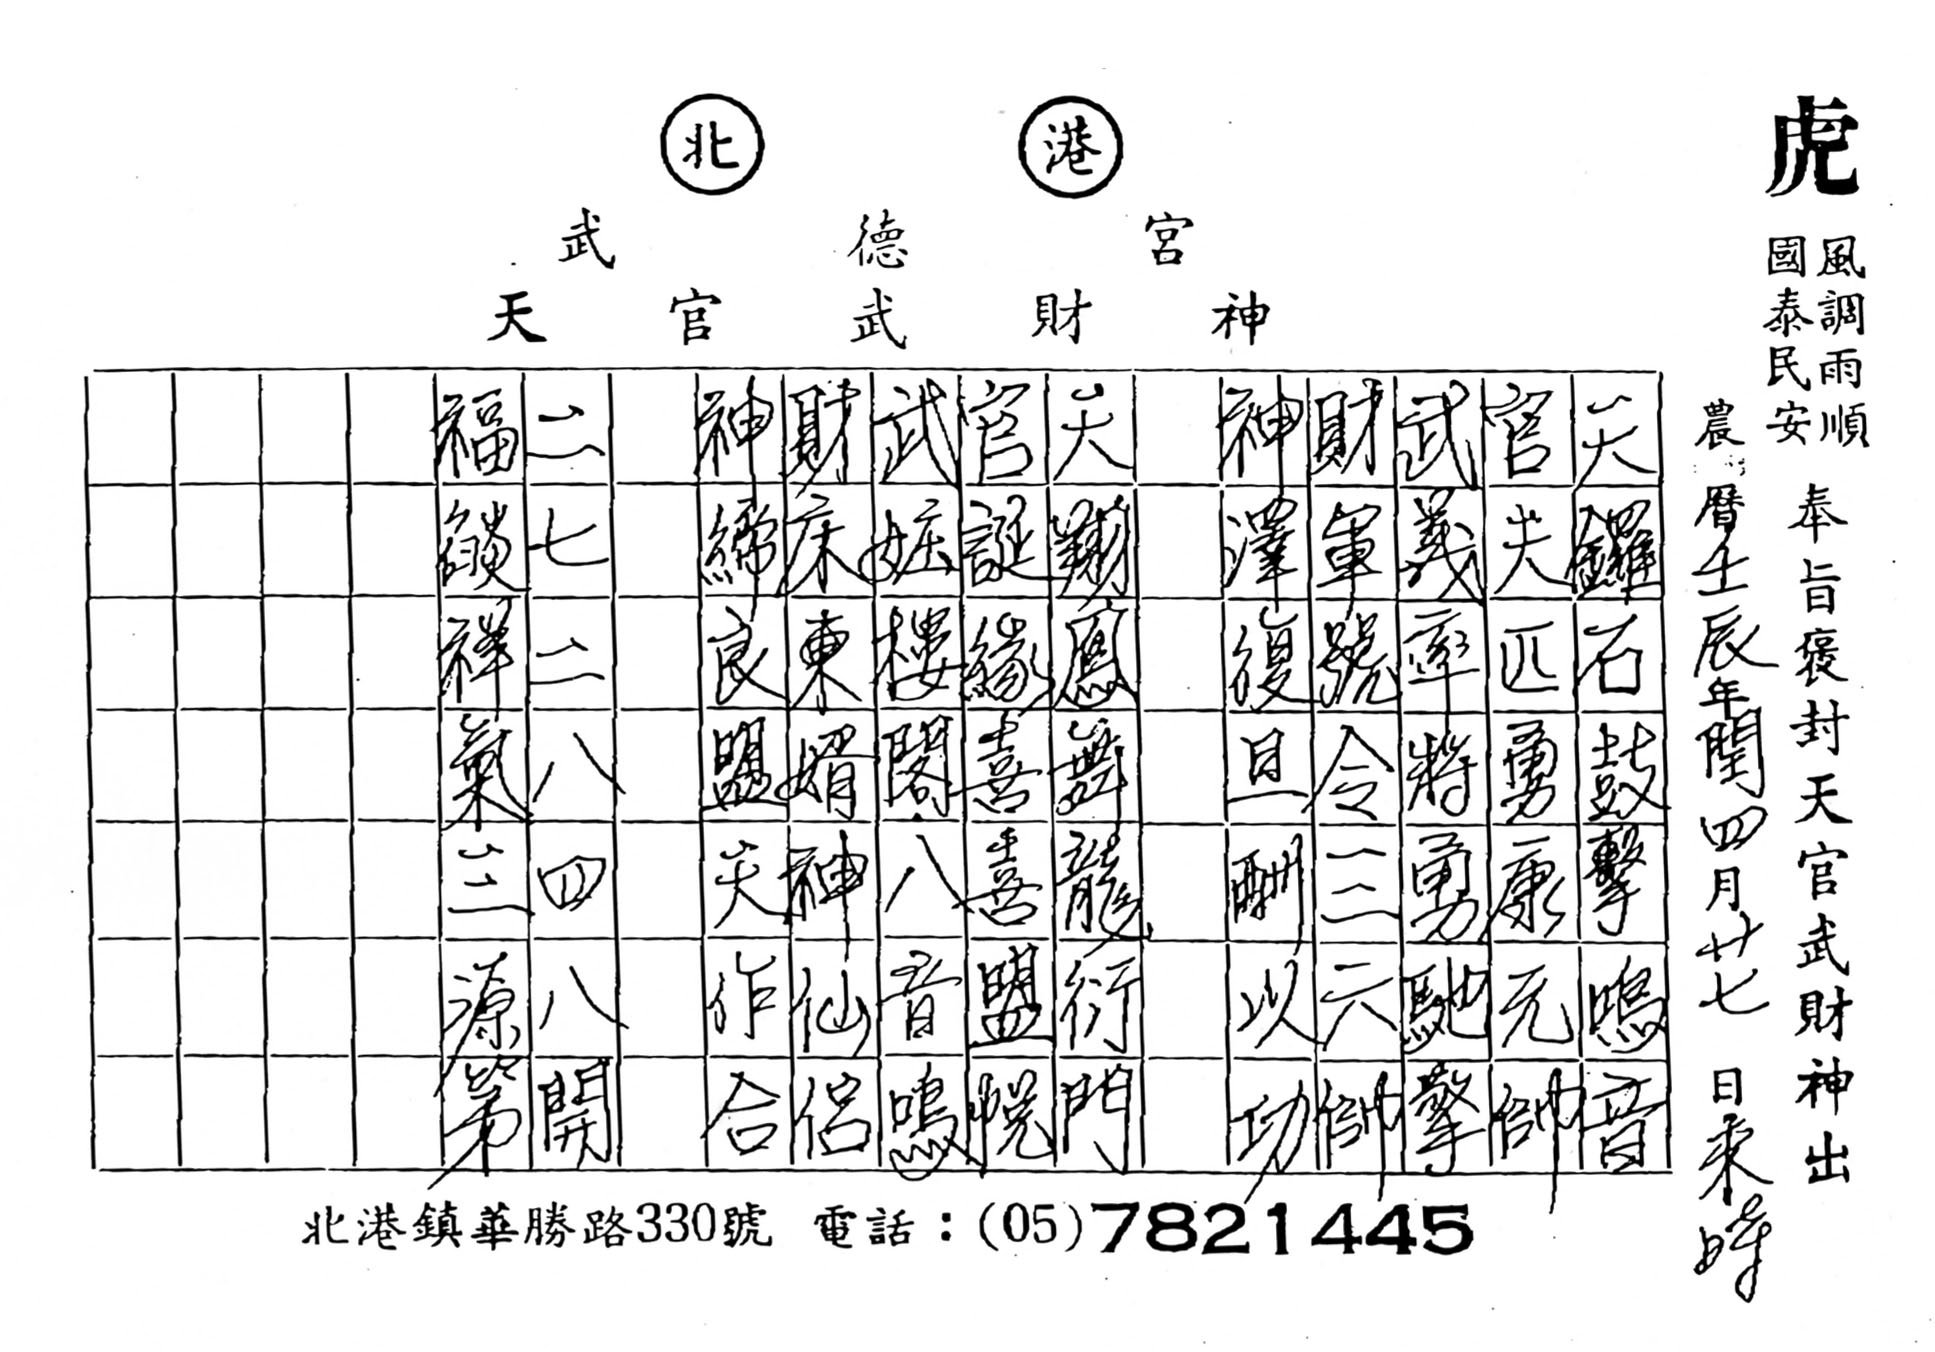 北港
武德宮
天官武財神
虎
風調雨順
國泰民安
奉旨褒封天官武財神出
農曆壬辰年閏四月廿七日來時
天鑼石鼓擊鳴音
官夫匹勇康元帥
武義率將勇馳擎
財軍號令三六帥
神澤復旦酬以功
天翔鳳舞龍衍門
官誕緣喜喜盟悅
武妘樓閣八音鳴
財床東婿神仙侶
神締良盟天作合
二七二八四八開
福鎖祥氣三源第
北港鎮華勝路330號 電話：(05)7821445